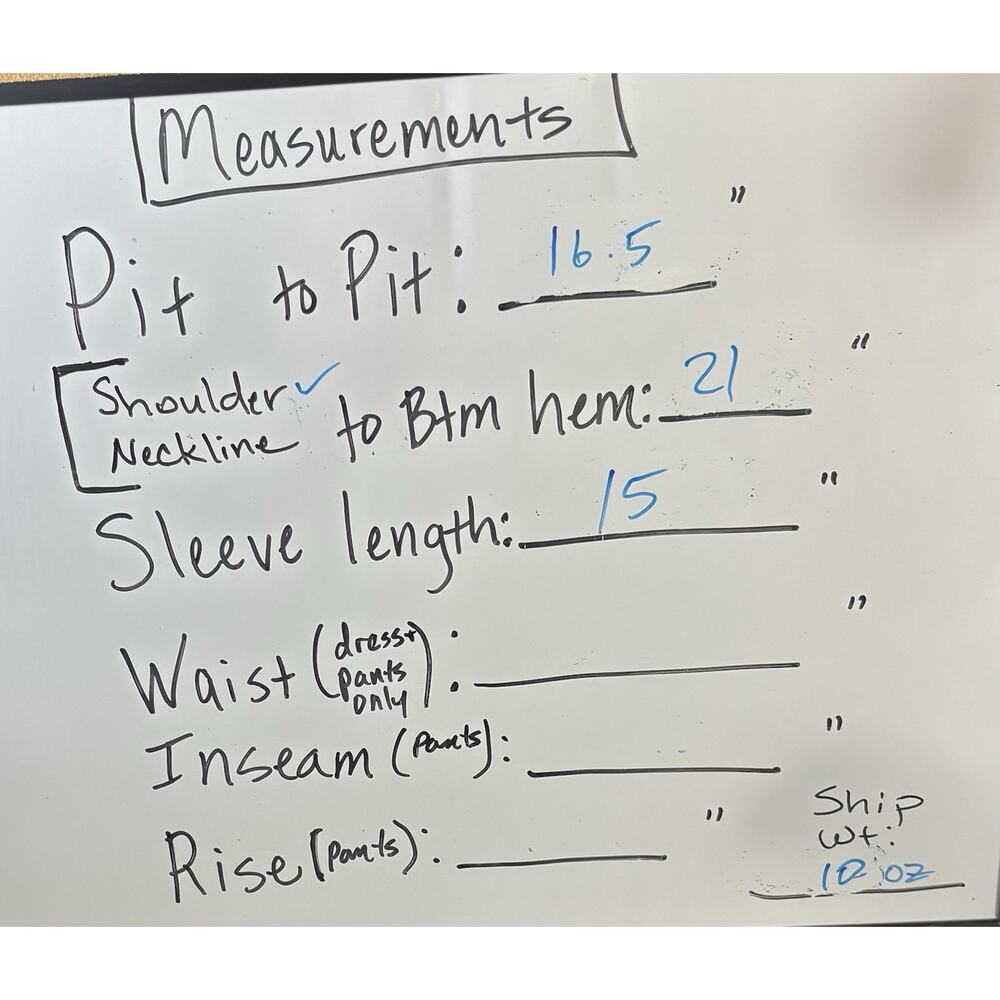 Measurements
Pit to Pit: 16.5 "
Shoulder ✓
Neckline
to Btm hem: 21 "
Sleeve length: 15 "
Waist (dress+ pants only): "
Inseam (pants): "
Rise (pants): "
Ship
Wt:
10 oz